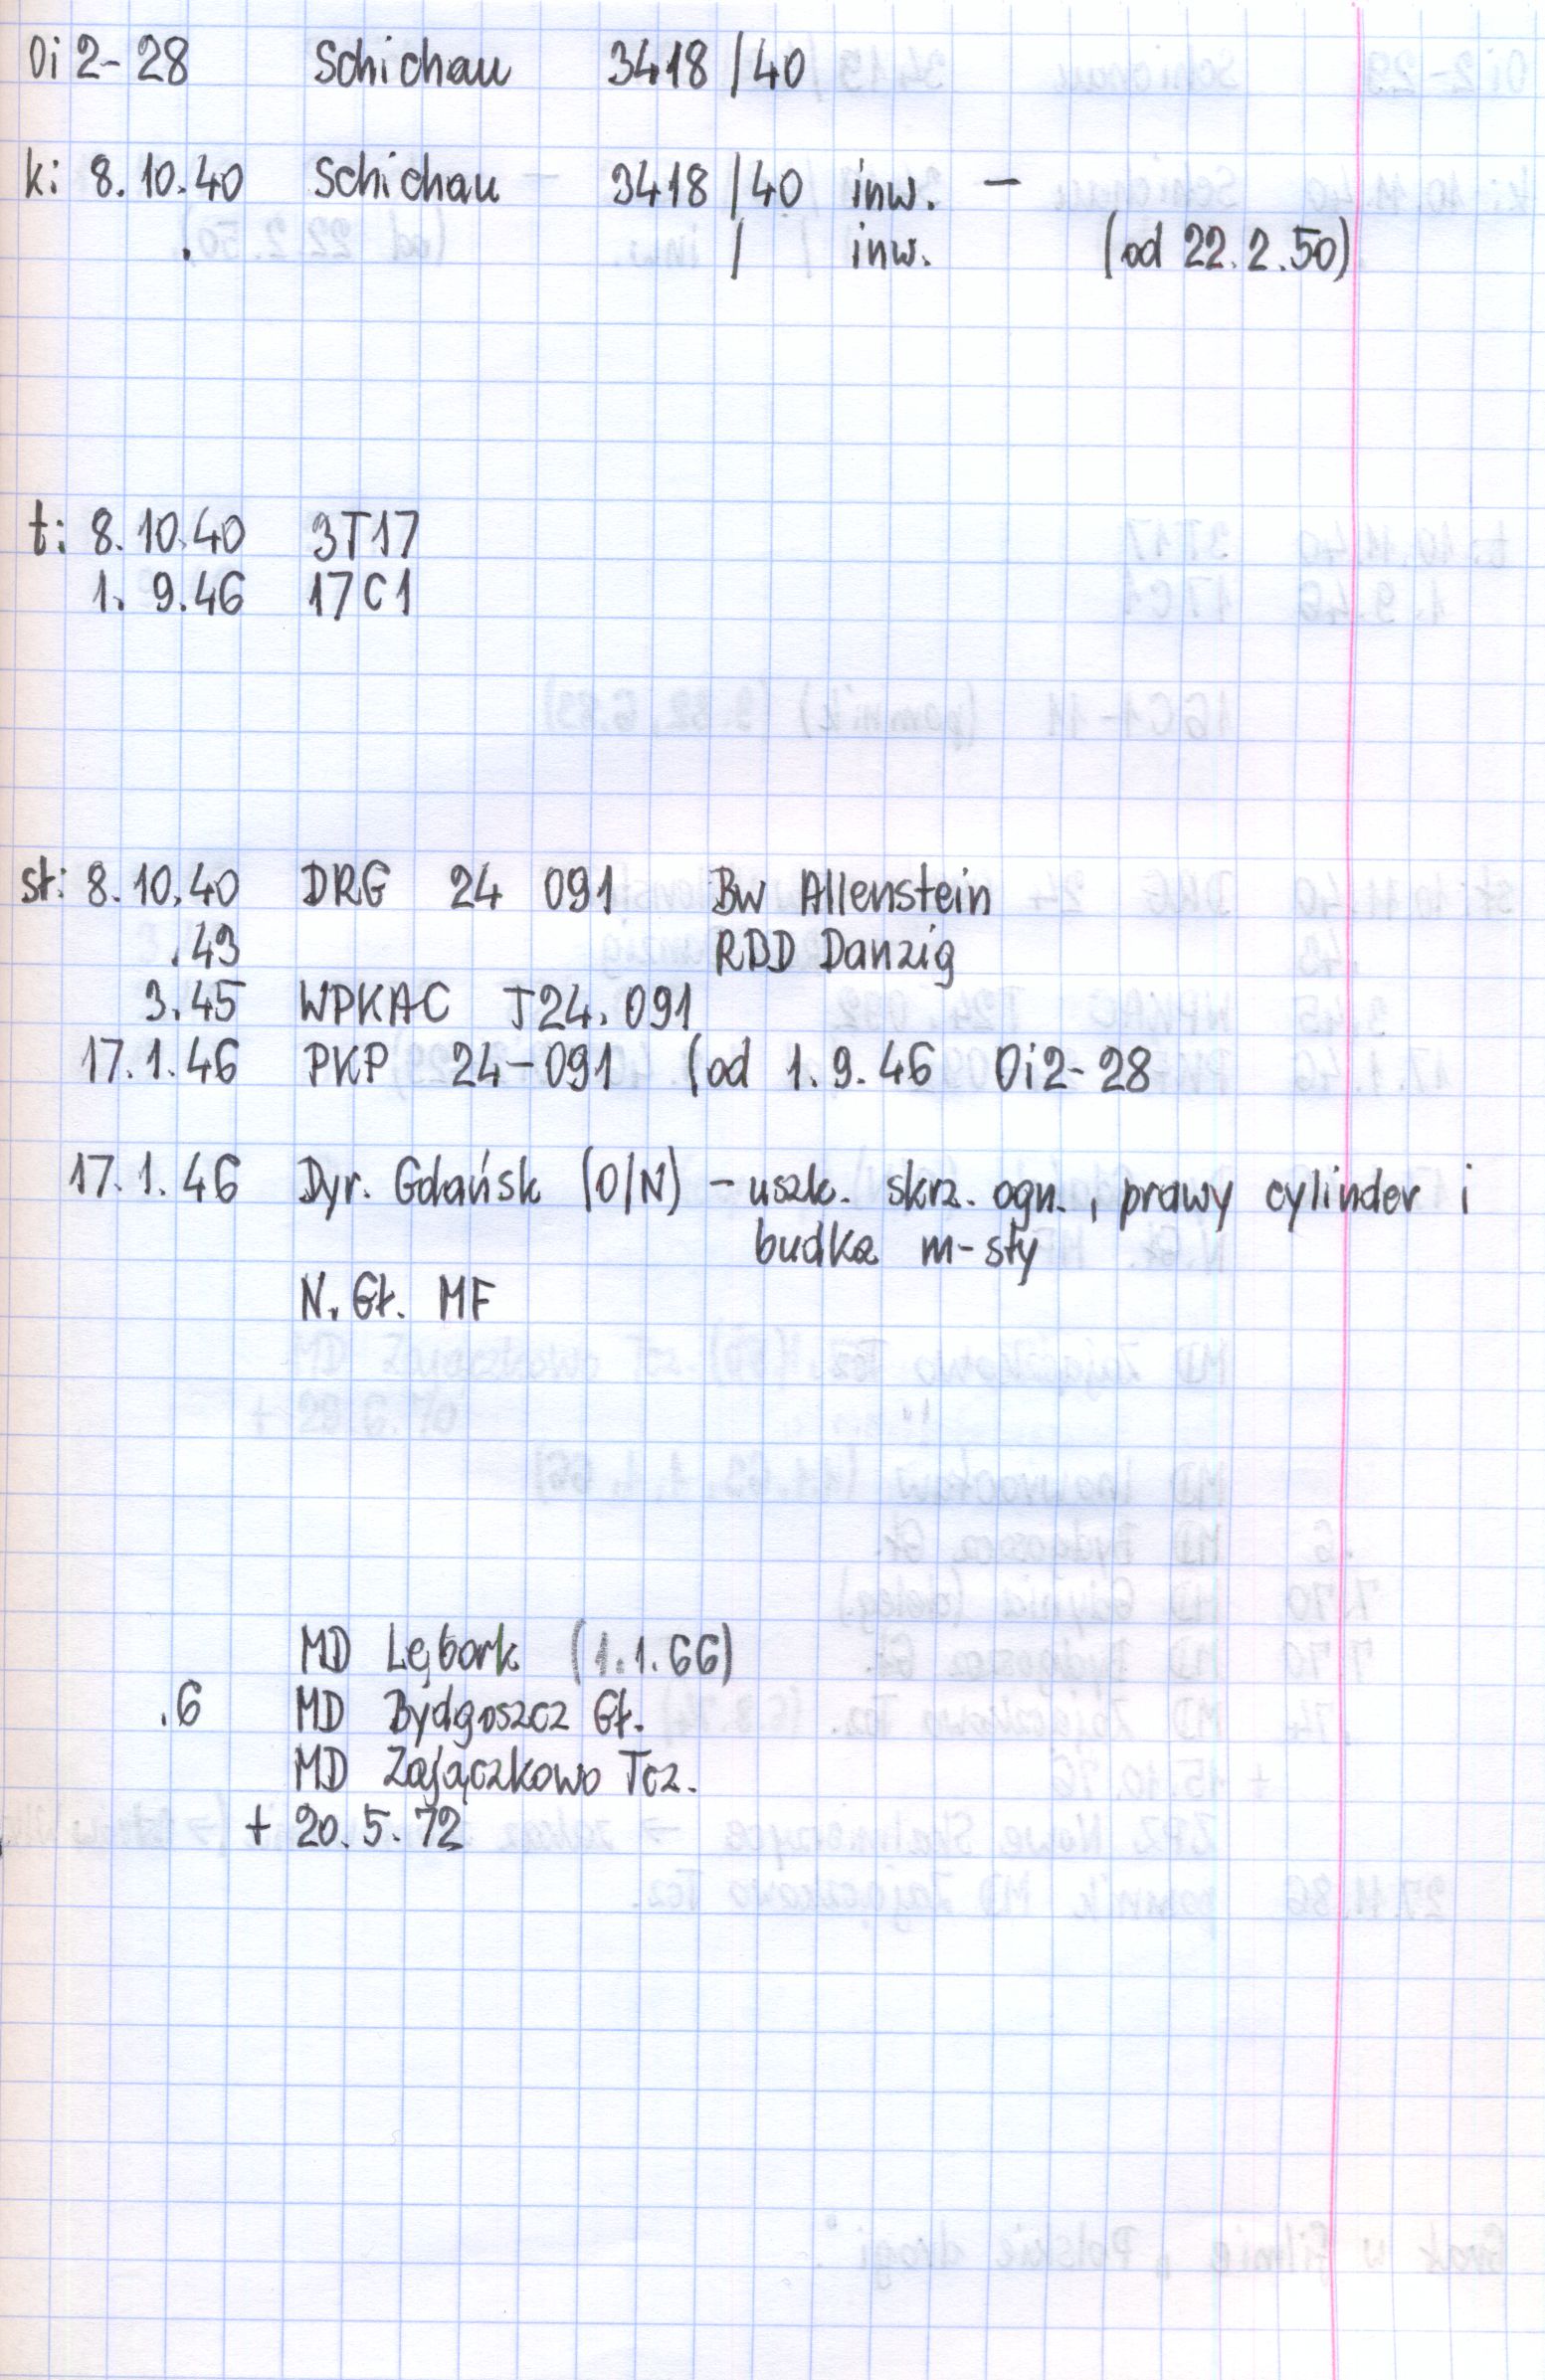 Oi 2-28 Schichau 3418/40
k: 8.10.40 Schichau - 3418/40 inw. -
. / inw. (od 22.2.50)
t: 8.10.40 3T17
1. 9.46 17C1
st: 8.10.40 DRG 24 091 Bw Allenstein
.43 RBD Danzig
3.45 WPKAC T24.091
17.1.46 PKP 24-091 (od 1.9.46 Oi2-28
17.1.46 Dyr. Gdańsk (O/N) - uszk. skrz. ogn., prawy cylinder i
budka m-sty
N. Gł. MF
MD Lębork (1.1.66)
.6 MD Bydgoszcz Gł.
MD Zajączkowo Tcz.
+ 20.5.72